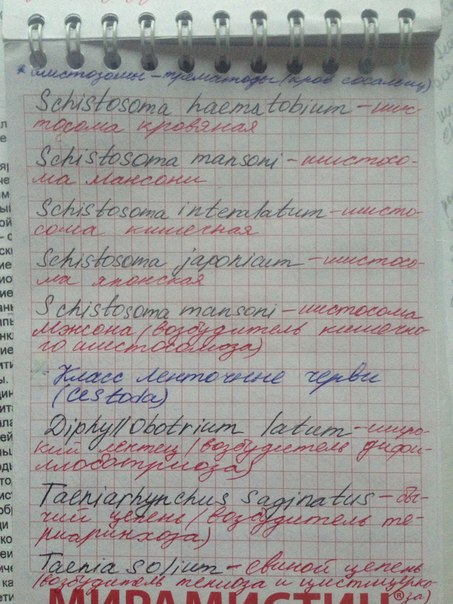 * (шистозомы - трематоды/кров. сосальщ)
Schistosoma haematobium - шис-
тосома кровяная
Schistosoma mansoni - шистосо-
ма мансони
Schistosoma intemlatum - шисто-
сома кишечная
Schistosoma japonicum - шистосо-
ма японская
Schistosoma mansoni - шистосома
Мэнсона (возбудитель кишечно-
го шистосомоза)
Класс ленточные черви
(Cestoda)
Diphyllobotrium latum - широ-
кий лентец (возбудитель дифи-
лоботриоза)
Taeniarhynchus saginatus - бы-
чий цепень (возбудитель те-
ниаринхоза)
Taenia solium - свиной цепень
(возбудитель тениоза и цистицерко-
за)
МИРАМИСТИН®